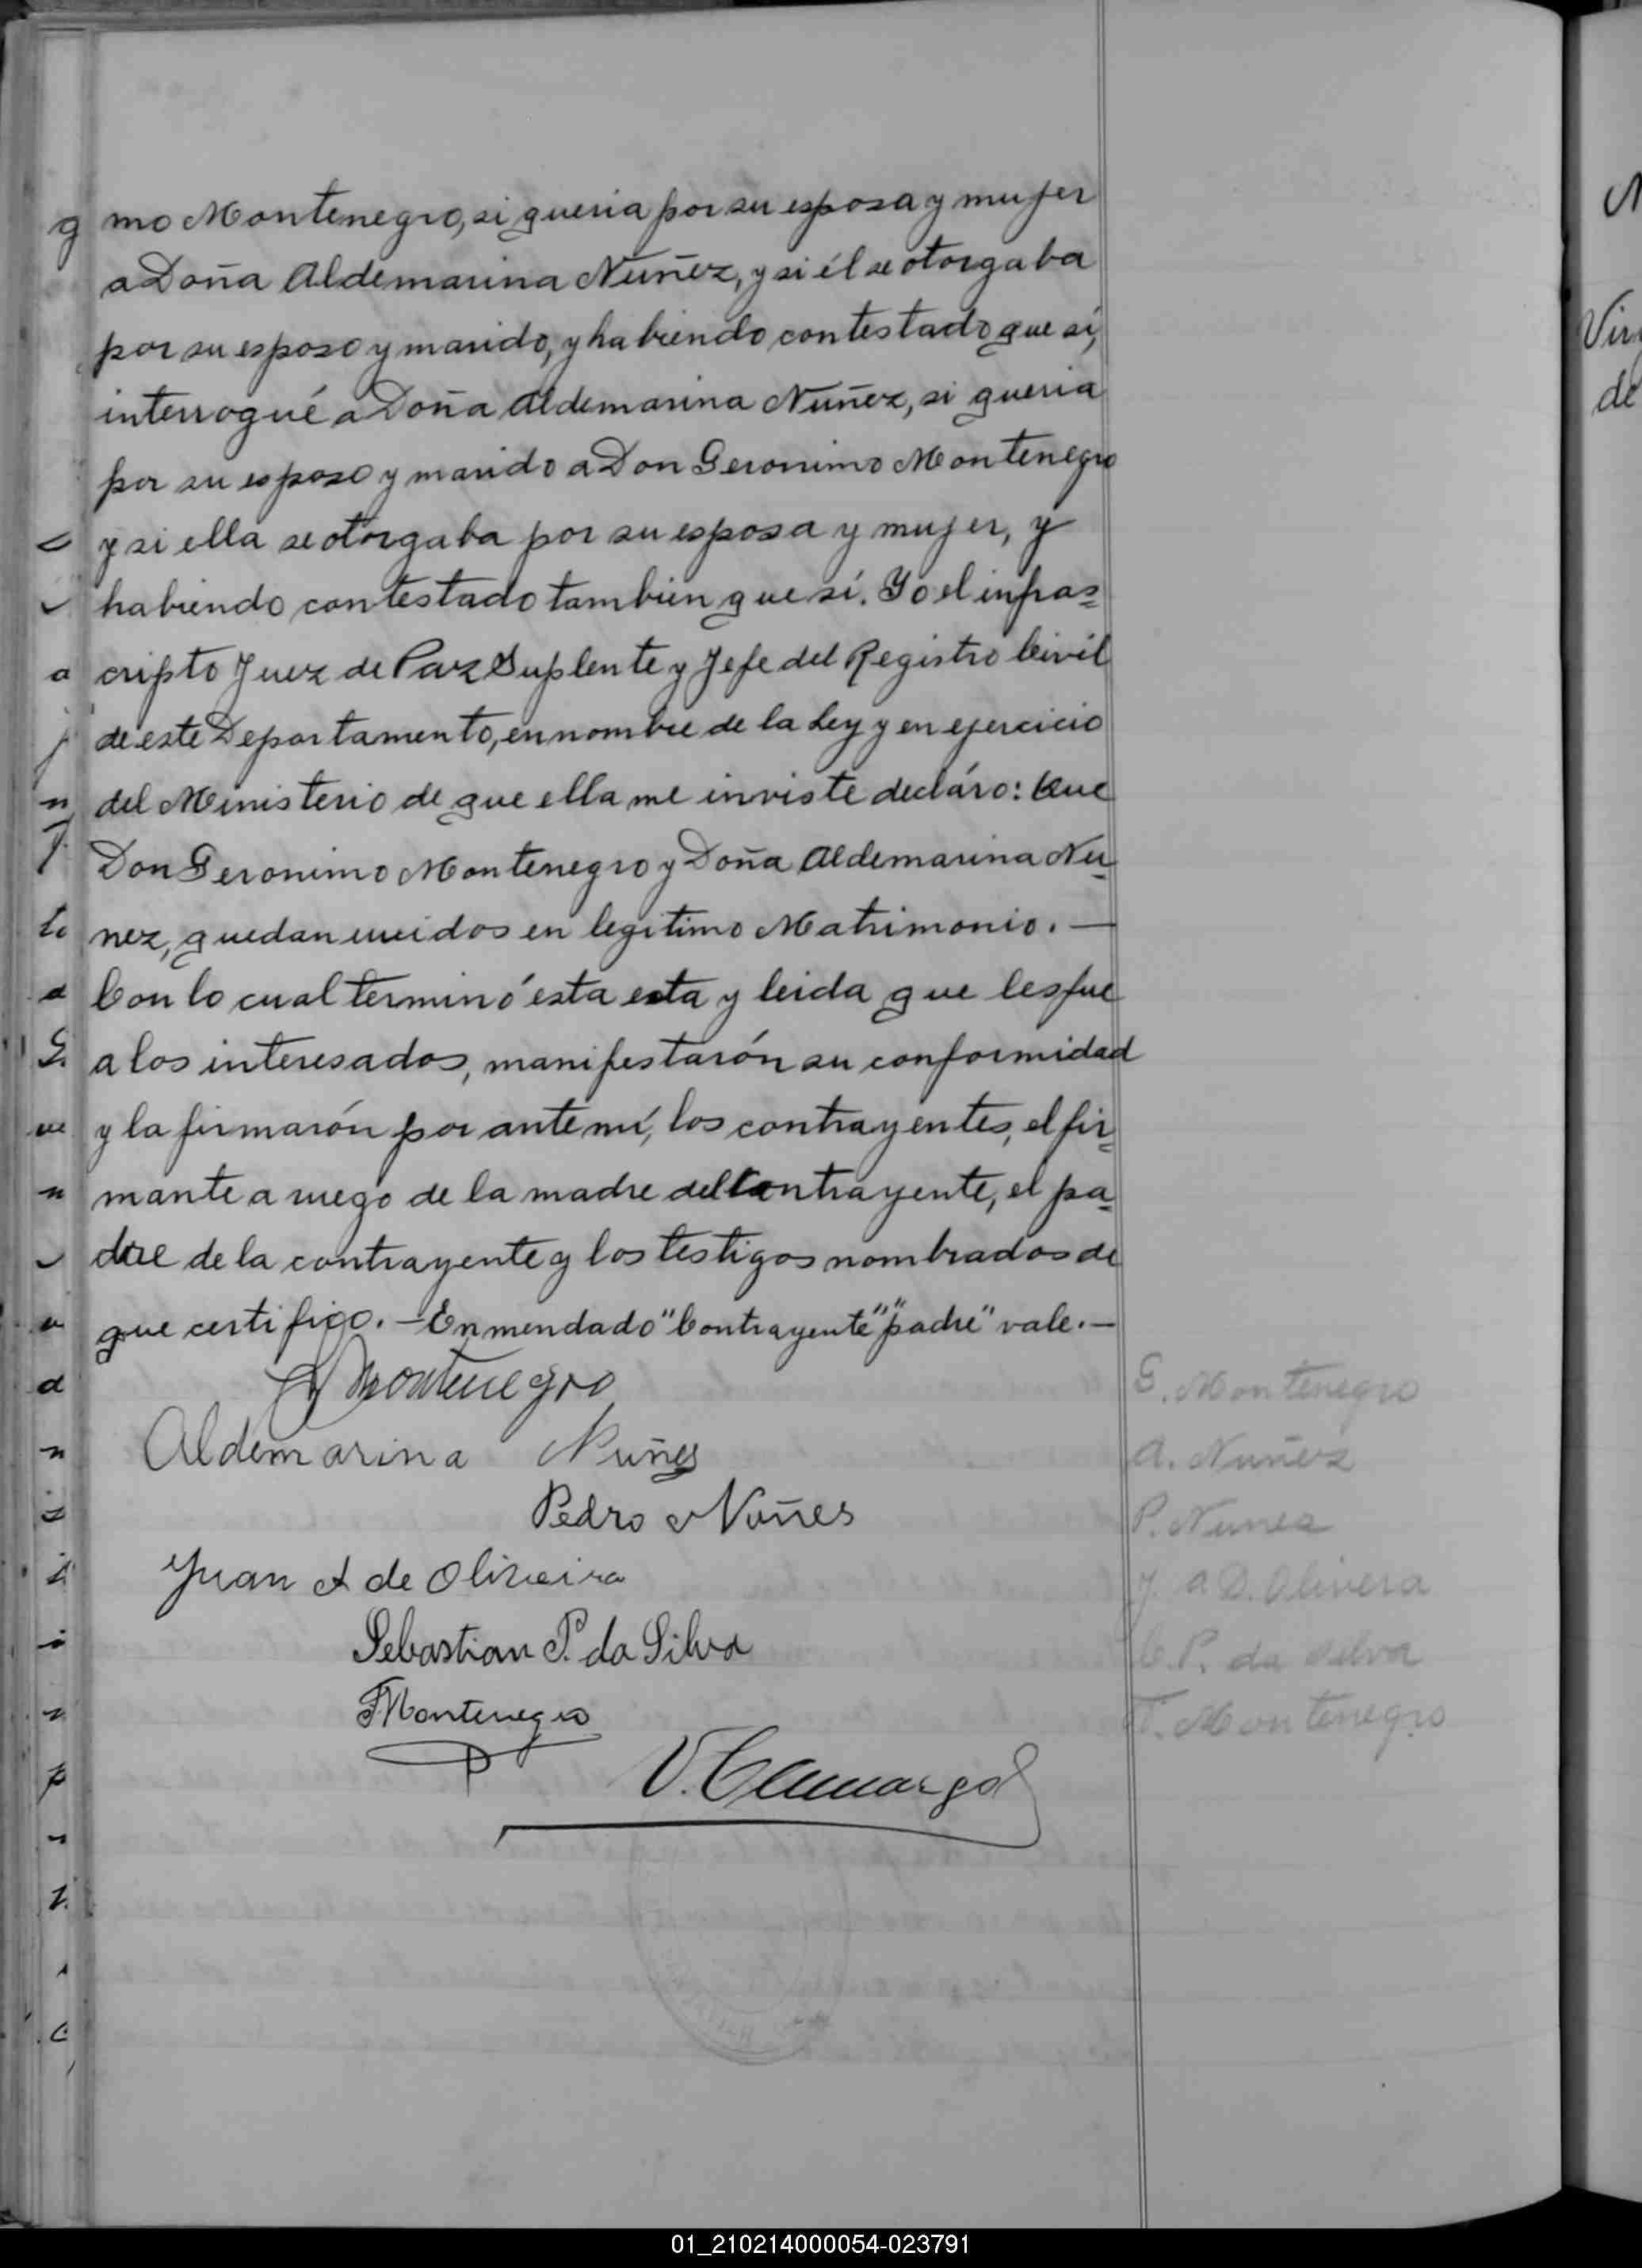 mo Montenegro, si queria por su esposa y mujer
a Doña Aldemarina Nuñez, y si él se otorgaba
por su esposo y marido, y habiendo contestado que sí,
interrogué a Doña Aldemarina Nuñez, si queria
por su esposo y marido a Don Geronimo Montenegro
y si ella se otorgaba por su esposa y mujer, y
habiendo contestado tambien que sí. Yo el infras=
cripto Juez de Paz Suplente y Jefe del Registro Civil
de este Departamento, en nombre de la Ley y en ejercicio
del Ministerio de que ella me inviste decláro: Que
Don Geronimo Montenegro y Doña Aldemarina Nu=
nez, quedan unidos en legitimo Matrimonio. —
Con lo cual terminó esta esta y leida que les fue
a los interesados, manifestarón su conformidad
y la firmarón por ante mí, los contrayentes, el fir=
mante a ruego de la madre del Contrayente, el pa=
dre de la contrayente y los testigos nombrados de
que certifico. — Enmendado "Contrayente" "padre" vale. —
Montenegro
Aldemarina Nuñes
Pedro Nuñes
Juan A de Oliveira
Sebastian P. da Silva
Montenegro
V. Camargo
G. Montenegro
A. Nuñez
P. Nunes
J. a D. Olivera
P. da Silva
Montenegro
Vir
de
01_210214000054-023791